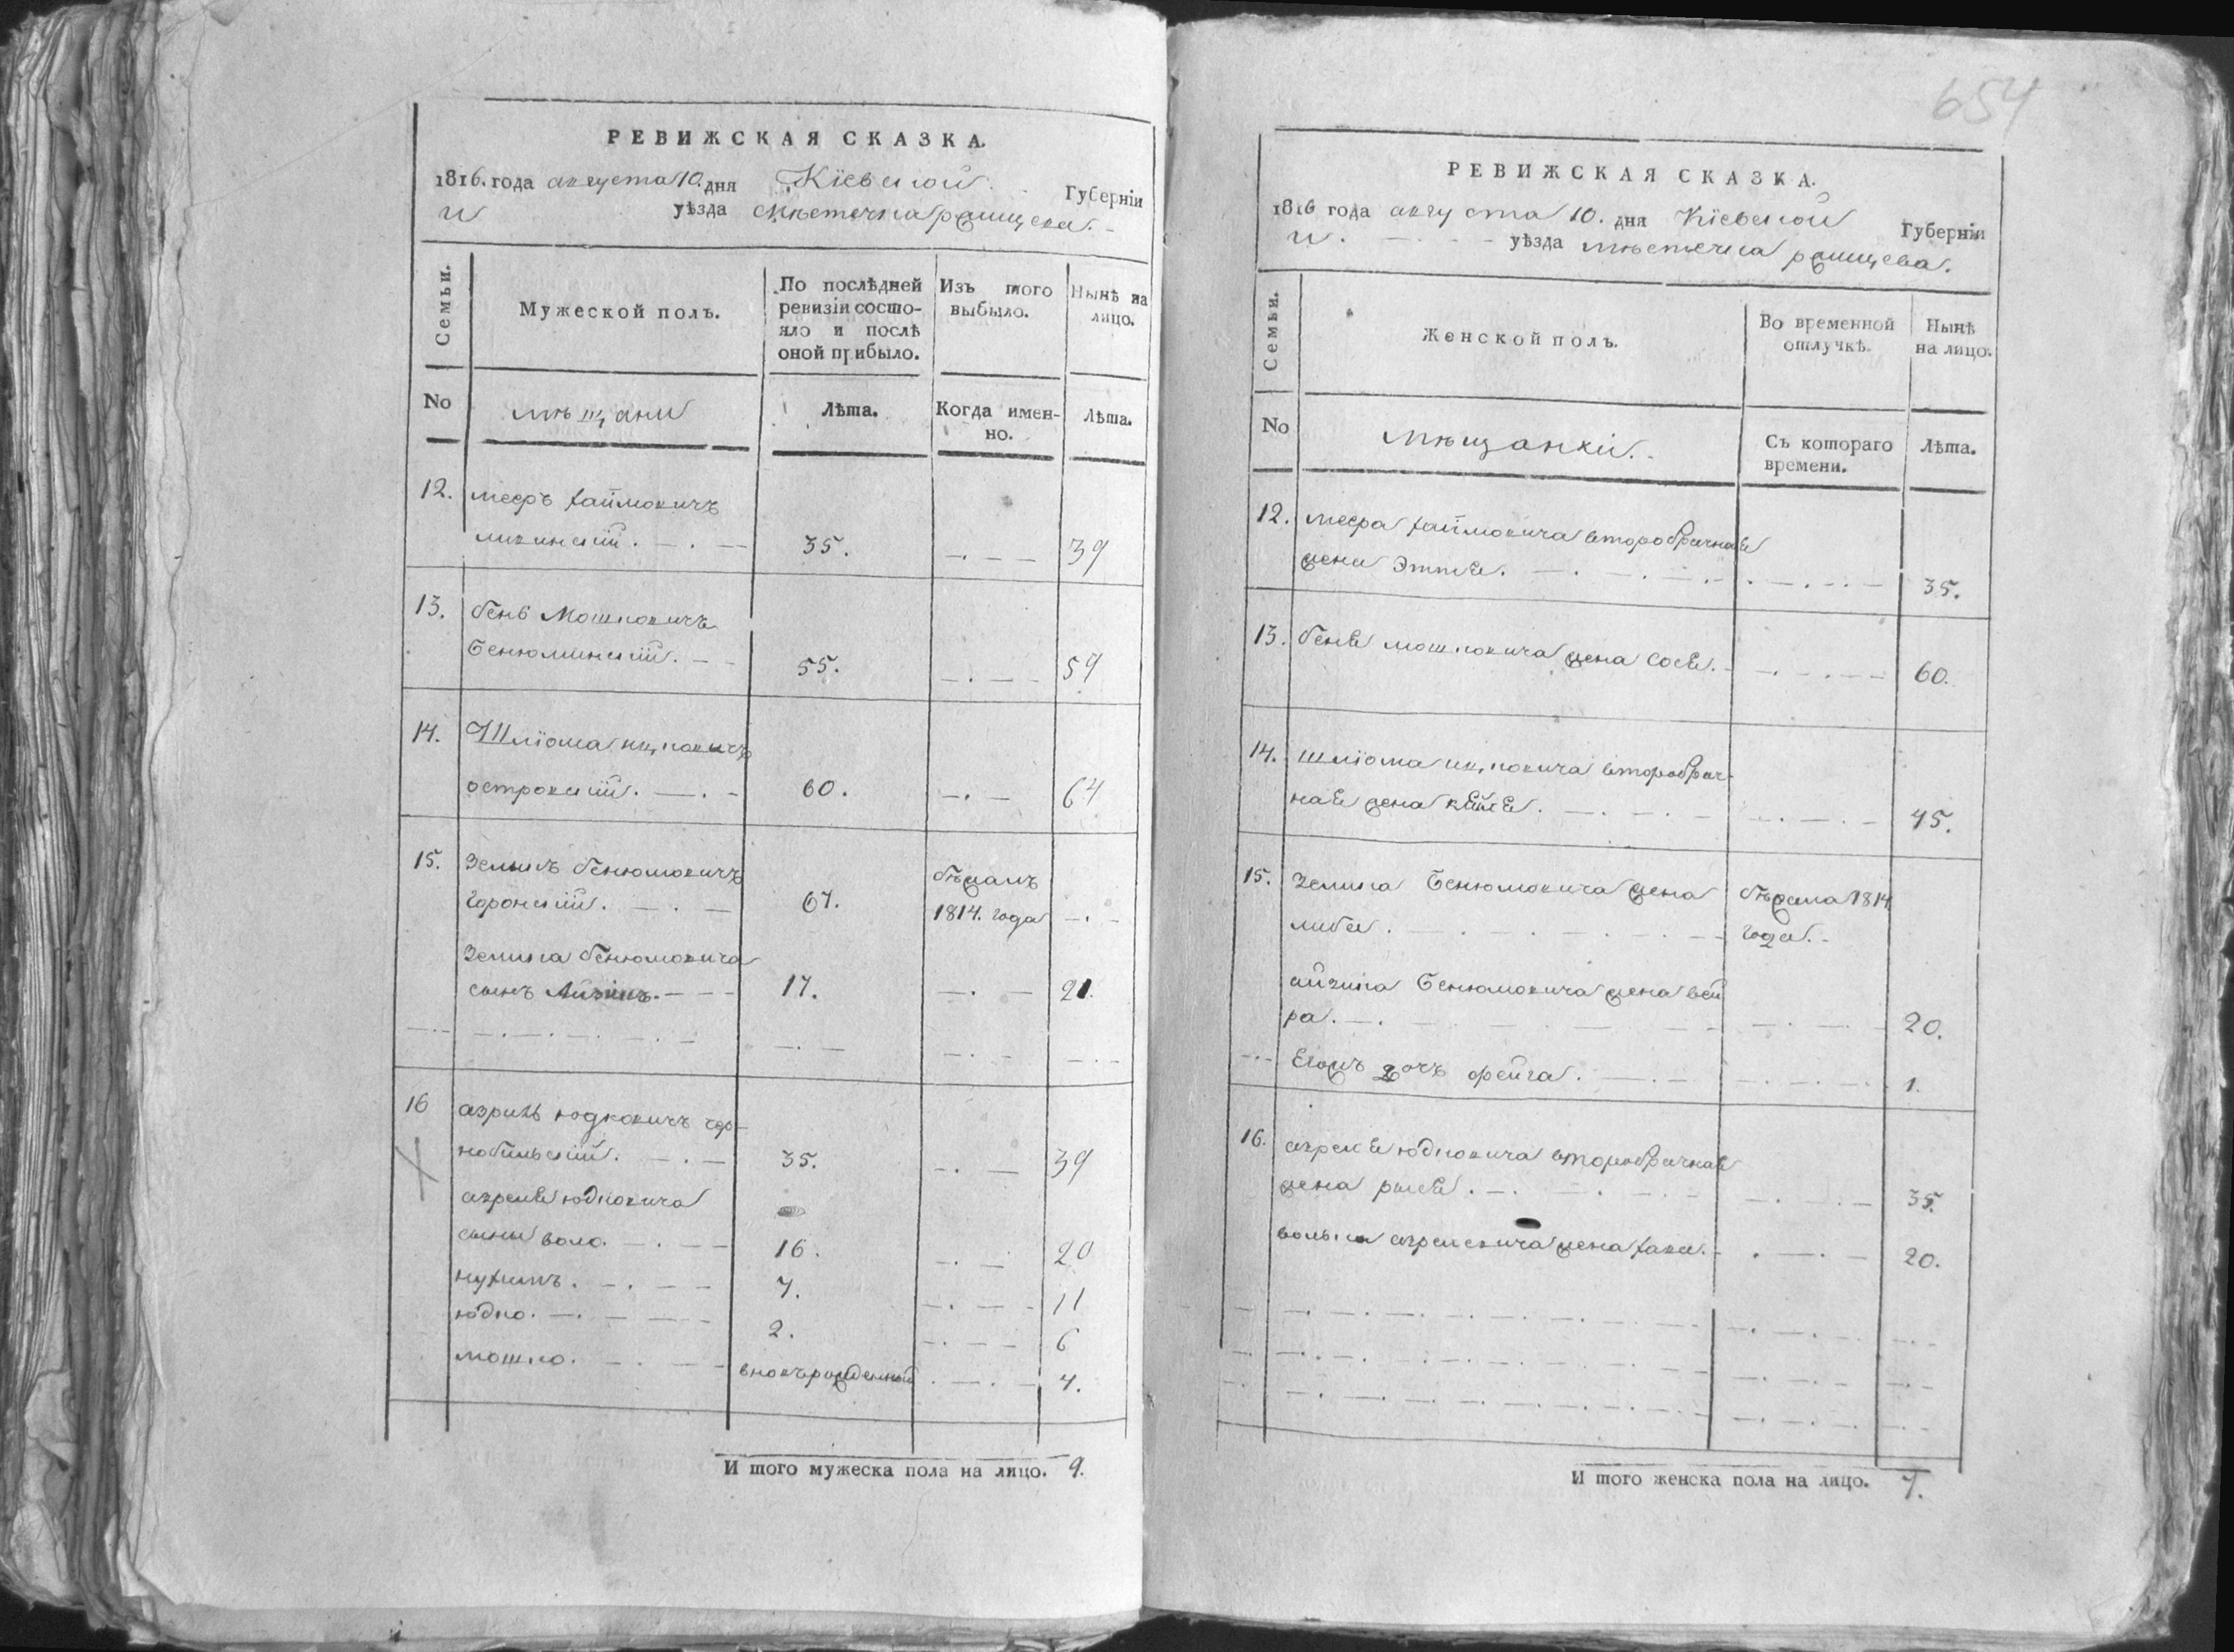 РЕВИЖСКАЯ СКАЗКА.
1816. года августа 10. дня Кїевской Губернїи
и уѣзда мѣстечка ращцева.
Семьи.
Мужеской полъ.
По послѣдней ревизїи состояло и послѣ оной прибыло.
Изъ того выбыло.
Нынѣ на лицо.
No
мѣщани
Лѣта.
Когда именно.
Лѣта.
12. меэръ хаймовичъ
35. 39
13. бень мошковичъ
бенюминскій. 55. 59
14. Шліома ицковичъ
островскій. 60. 64
15. Зелыкъ бенюмовичъ бѣжалъ
67. 1814. года
Зелика бенюмовича
сынъ Айзикъ. 17. 21.
16 азриль юдковичъ чер-
нобильскій. 35. 39
азриля юдковича
сыны волю. 16. 20
нухимъ. 7. 11
юдко. 2. 6
мошко. вновърожденный 4.
И того мужеска пола на лицо. 9.
654
РЕВИЖСКАЯ СКАЗКА.
1816 года августа 10. дня Кїевской Губернїи
и. уѣзда мѣстечка ращцева.
Семьи.
Женской полъ.
Во временной отлучкѣ.
Нынѣ на лицо.
No
мѣщанкій.
Съ котораго времени.
Лѣта.
12. меэра хаймовича второбрачная
жена Этля. 35.
13. беня мошковича жена сося. 60.
14. шліома ицковича второбрач-
ная жена кейля. 45.
15. Зелика бенюмовича жена бѣжала 1814
либа. года.
айзика бенюмовича жена вей
ра. 20.
Егожъ дочъ фейга. 1.
16. азриля юдковича второбрачная
жена рыся. 35.
волька азрилевича жена хава. 20.
И того женска пола на лицо. 7.